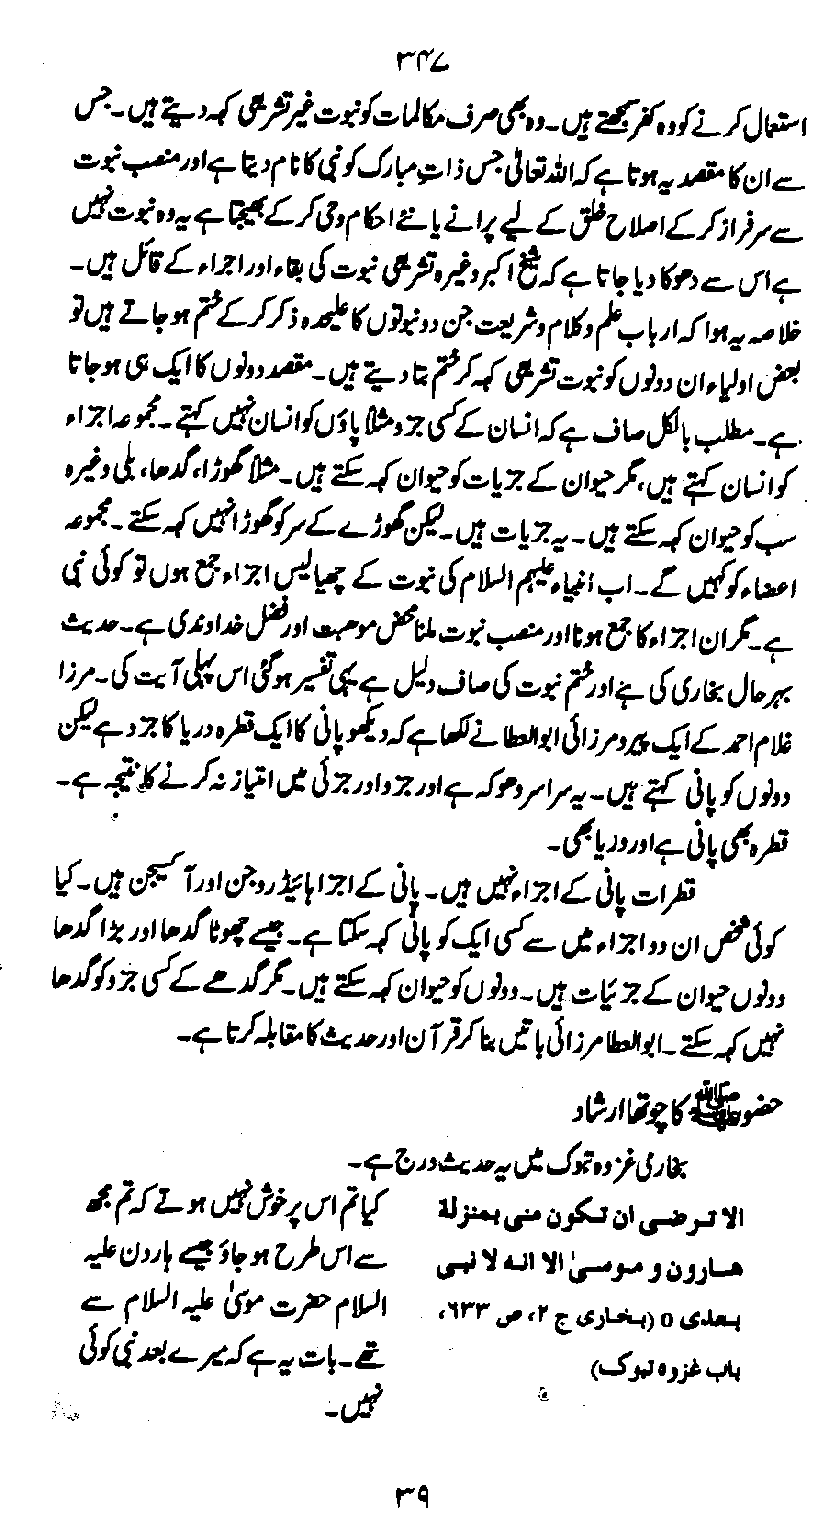 ۳۴۷
استعمال کرنے کو وہ کفر سمجھتے ہیں۔ وہ بھی صرف مکالمات کو نبوت غیر تشریعی کہہ دیتے ہیں۔ جس
سے ان کا مقصد یہ ہوتا ہے کہ اللہ تعالیٰ جس ذات مبارک کو نبی کا نام دیتا ہے اور منصب نبوت
سے سرفراز کر کے اصلاح خلق کے لیے پرانے یا نئے احکام وحی کر کے بھیجتا ہے یہ وہ نبوت نہیں
ہے اس سے دھوکا دیا جاتا ہے کہ شیخ اکبر وغیرہ تشریعی نبوت کی بقاء اور اجراء کے قائل ہیں۔
خلاصہ یہ ہوا کہ ارباب علم و کلام و شریعت جن دو نبوتوں کا علیحدہ ذکر کر کے ختم ہو جاتے ہیں تو
بعض اولیاء ان دونوں کو نبوت تشریعی کہہ کر ختم بتا دیتے ہیں۔ مقصد دونوں کا ایک ہی ہو جاتا
ہے۔ مطلب بالکل صاف ہے کہ انسان کے کسی جزو مثلاً پاؤں کو انسان نہیں کہتے۔ مجموعہ اجزاء
کو انسان کہتے ہیں، مگر حیوان کے جزیات کو حیوان کہہ سکتے ہیں۔ مثلاً گھوڑا، گدھا، بلی وغیرہ
سب کو حیوان کہہ سکتے ہیں۔ یہ جزیات ہیں۔ لیکن گھوڑے کے سر کو گھوڑا نہیں کہہ سکتے۔ مجموعہ
اعضاء کو کہیں گے۔ اب انبیاء علیہم السلام کی نبوت کے چھیالیس اجزاء جمع ہوں تو کوئی نبی
ہے۔ مگر ان اجزاء کا جمع ہونا اور منصب نبوت ملنا محض موہبت اور فضل خداوندی ہے۔ حدیث
بہرحال بخاری کی ہے اور ختم نبوت کی صاف دلیل ہے یہی تفسیر ہو گئی اس پہلی آیت کی۔ مرزا
غلام احمد کے ایک پیرو مرزائی ابوالعطا نے لکھا ہے کہ دیکھو پانی کا ایک قطرہ دریا کا جزو ہے لیکن
دونوں کو پانی کہتے ہیں۔ یہ سراسر دھوکہ ہے اور جزو اور جزئی میں امتیاز نہ کرنے کا نتیجہ ہے۔
قطرہ بھی پانی ہے اور دریا بھی۔
قطرات پانی کے اجزاء نہیں ہیں۔ پانی کے اجزا ہائیڈروجن اور آکسیجن ہیں۔ کیا
کوئی شخص ان دو اجزاء میں سے کسی ایک کو پانی کہہ سکتا ہے۔ جیسے چھوٹا گدھا اور بڑا گدھا
دونوں حیوان کے جزئیات ہیں۔ دونوں کو حیوان کہہ سکتے ہیں۔ مگر گدھے کے کسی جزو کو گدھا
نہیں کہہ سکتے۔ ابوالعطا مرزائی باتیں بنا کر قرآن اور حدیث کا مقابلہ کرتا ہے۔
حضور ﷺ کا چوتھا ارشاد
بخاری غزوہ تبوک میں یہ حدیث درج ہے۔
الا ترضی ان تکون منی بمنزلة
ھارون و موسیٰ الا انہ لا نبی
بعدی o (بخاری ج ۲، ص ۶۳۳،
باب غزوہ تبوک)
کیا تم اس پر خوش نہیں ہوتے کہ تم مجھ
سے اس طرح ہو جاؤ جیسے ہارون علیہ
السلام حضرت موسیٰ علیہ السلام سے
تھے۔ بات یہ ہے کہ میرے بعد نبی کوئی
نہیں۔
۳۹